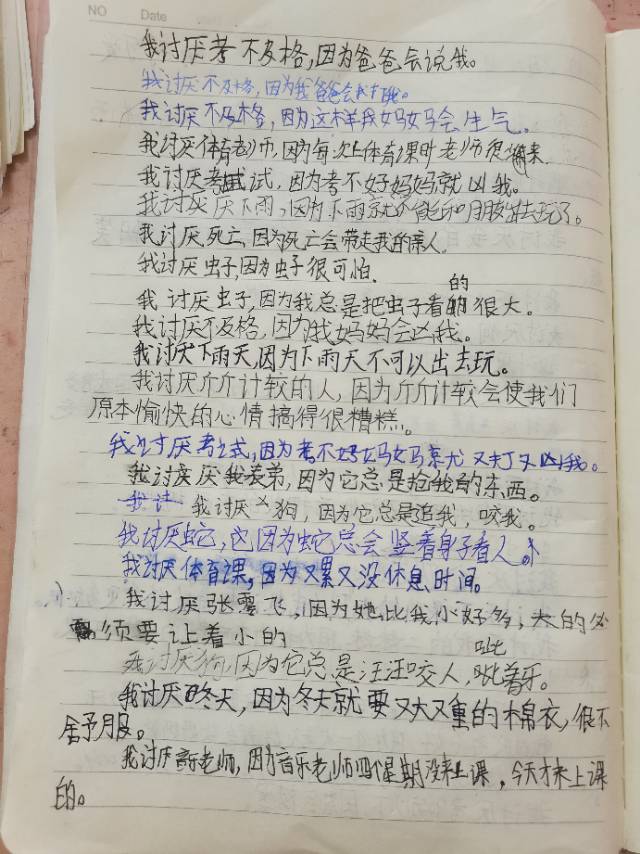 NO
Date
我讨厌考不及格,因为爸爸会说我。
我讨厌不及格,因为我爸爸会打我。
我讨厌不及格,因为这样我妈妈会生气。
我讨厌体育老师,因为每次上体育课时老师很来
我讨厌考试,因为考不好妈妈就凶我。
我讨厌下雨,因为下雨就不能和朋友出去玩了。
我讨厌死亡,因为死亡会带走我的亲人.
我讨厌虫子,因为虫子很可怕.
的
我讨厌虫子,因为我总是把虫子看很大。
我讨厌不及格,因为我妈妈会凶我。
我讨厌下雨天,因为下雨天不可以出去玩。
我讨厌斤斤计较的人,因为斤斤计较会使我们
原本愉快的心情搞得很糟糕。
我讨厌考试,因为考不好妈妈就又打又凶我。
我讨厌我表弟,因为它总是抢我的东西。
我讨 我讨厌狗,因为它总是追我,咬我。
我讨厌蛇,因为蛇总会竖着身子看人。
我讨厌体育课,因为又累又没休息时间。
我讨厌张雯飞,因为她比我小好多,大的必
须要让着小的
呲
我讨厌狗,因为它总是汪汪咬人,呲着牙。
我讨厌冬天,因为冬天就要又大又重的棉衣,很不
舒服。
我讨厌音乐老师,因为音乐老师四个星期没来上课,今天才来上课
的。